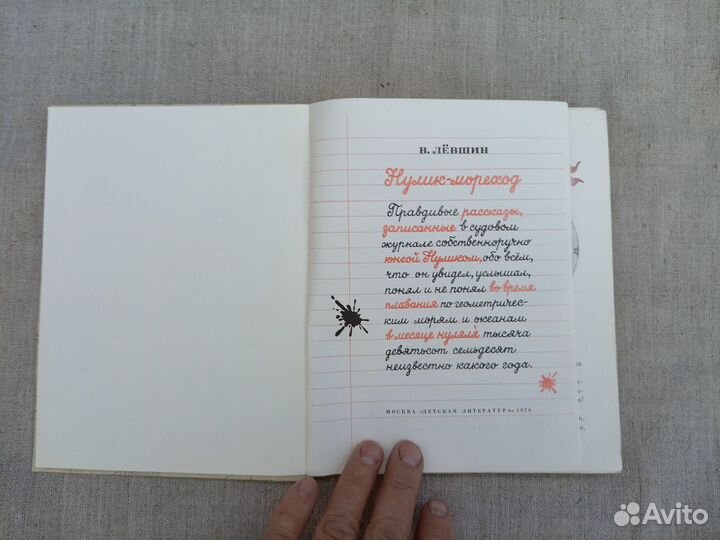 В. ЛЁВШИН
Нулик-мореход
Правдивые рассказы,
записанные в судовом
журнале собственноручно
юнгой Нуликом, обо всём,
что он увидел, услышал,
понял и не понял во время
плавания по геометричес-
ким морям и океанам
в месяце нуляле́ тысяча
девятьсот семьдесят
неизвестно какого года.
МОСКВА «ДЕТСКАЯ ЛИТЕРАТУРА» 1978
Avito